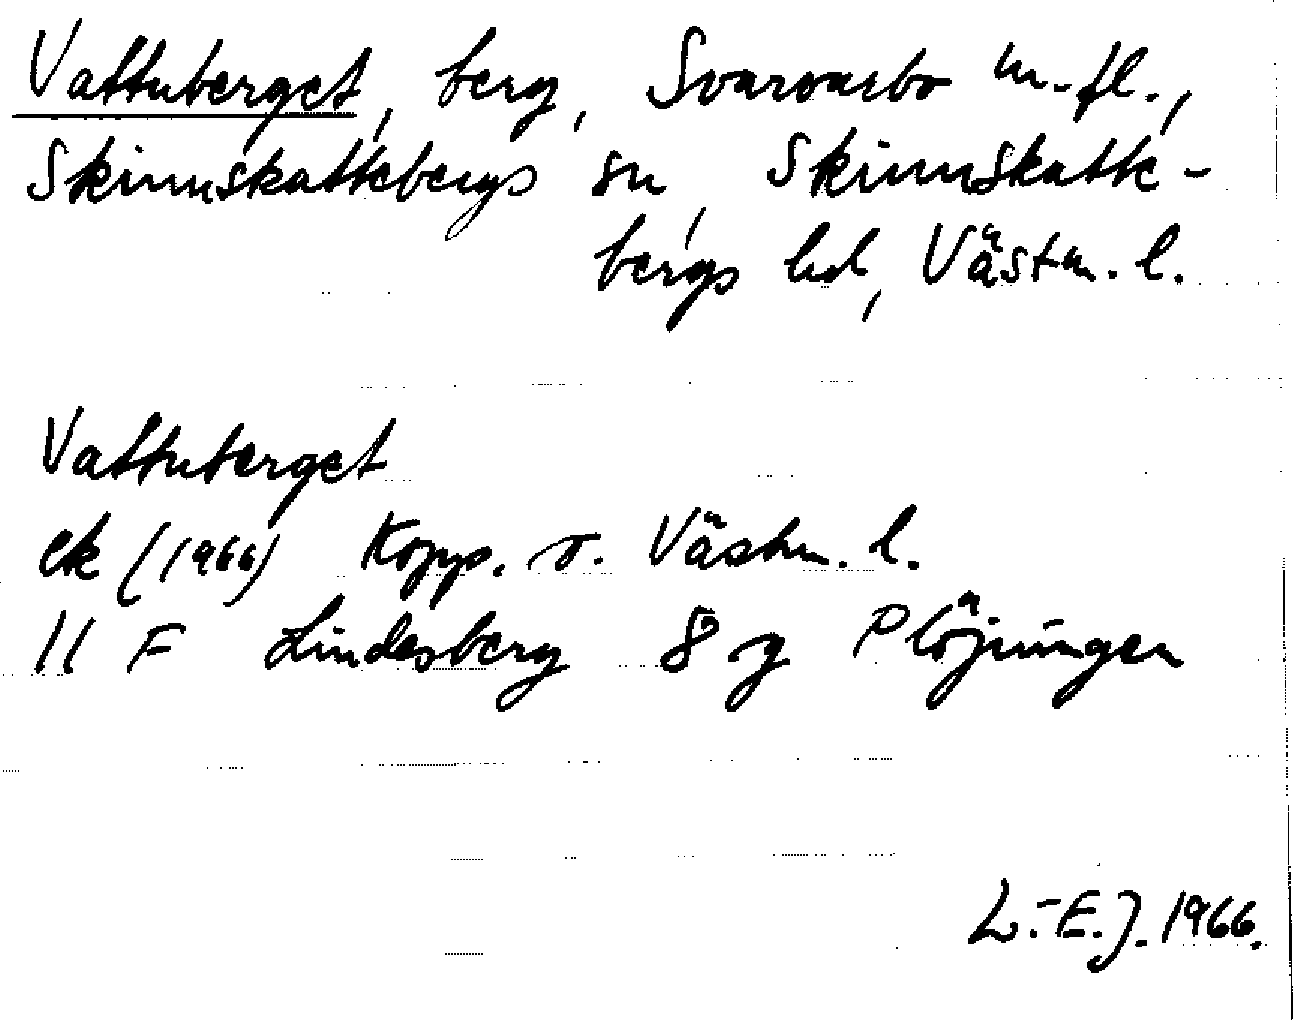 Vattuberget, berg, Svarvarbo m.fl.,
Skinnskattebergs sn, Skinnskatte-
bergs hd, Västm. l.
Vattuberget
ek (1966) Kopp. o. Västm. l.
11 F Lindesberg 8 g Plöjningen
L.-E.J. 1966.